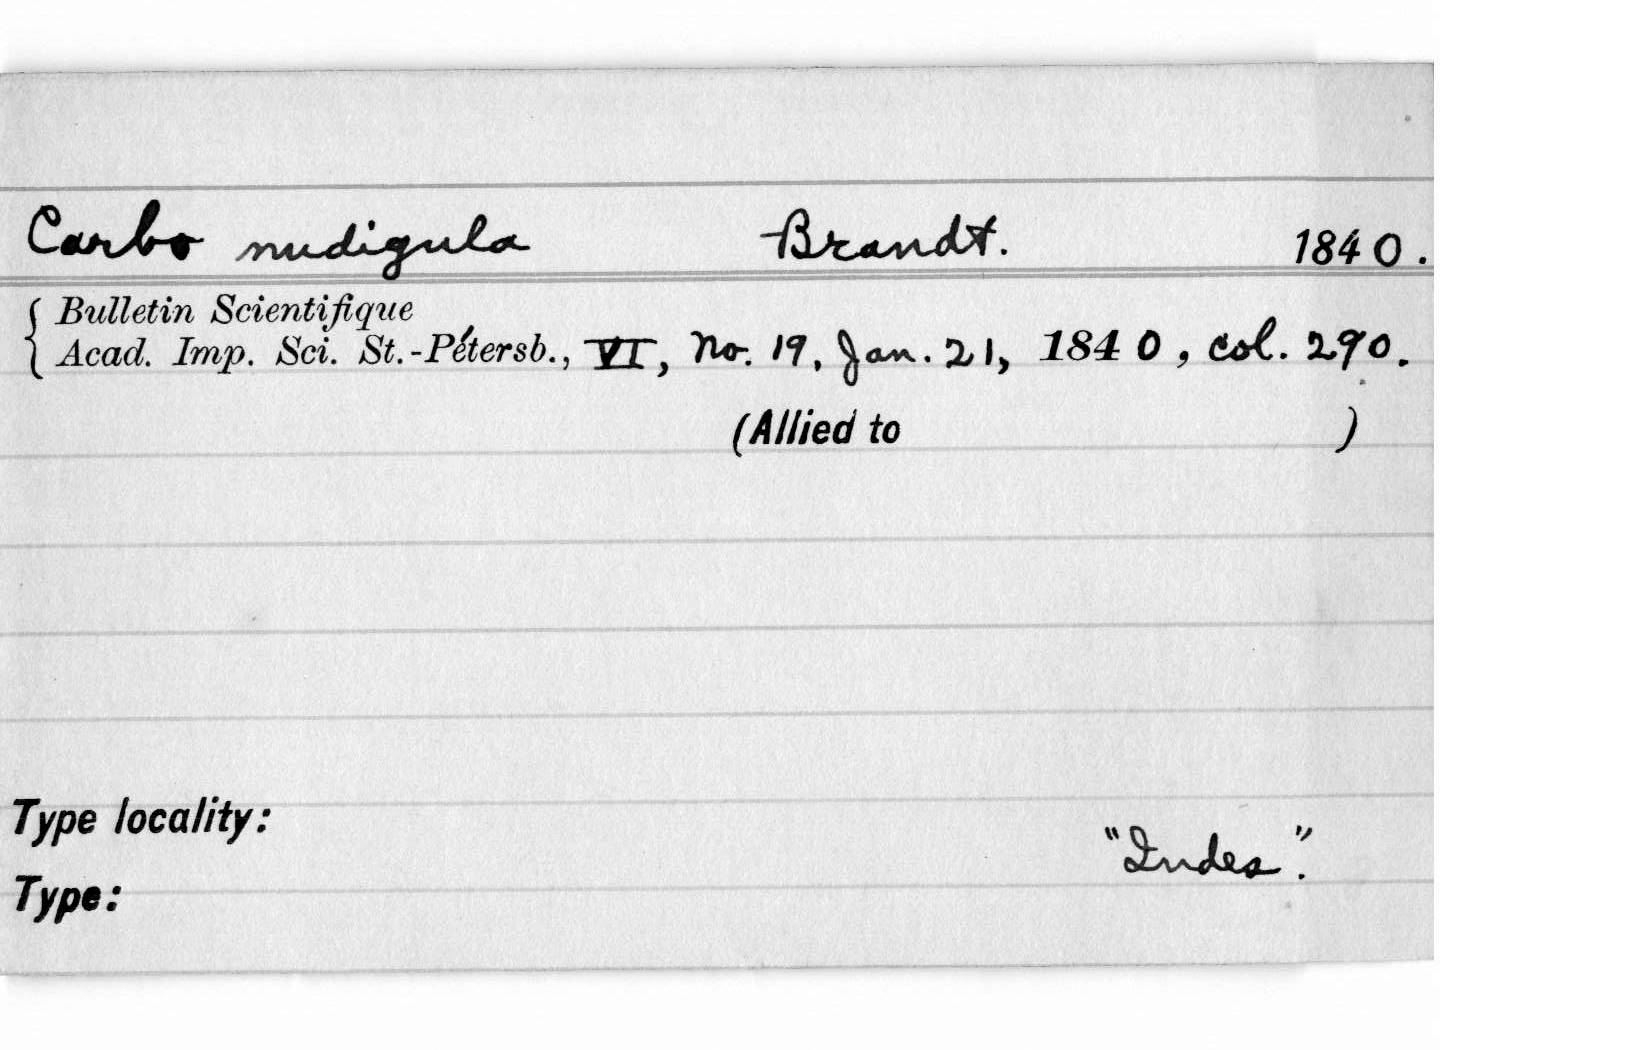 Carbo nudigula Brandt. 1840.
{ Bulletin Scientifique
Acad. Imp. Sci. St.-Pétersb., VI, No. 19, Jan. 21, 1840, col. 290.
(Allied to )
Type locality:
"Indes".
Type: